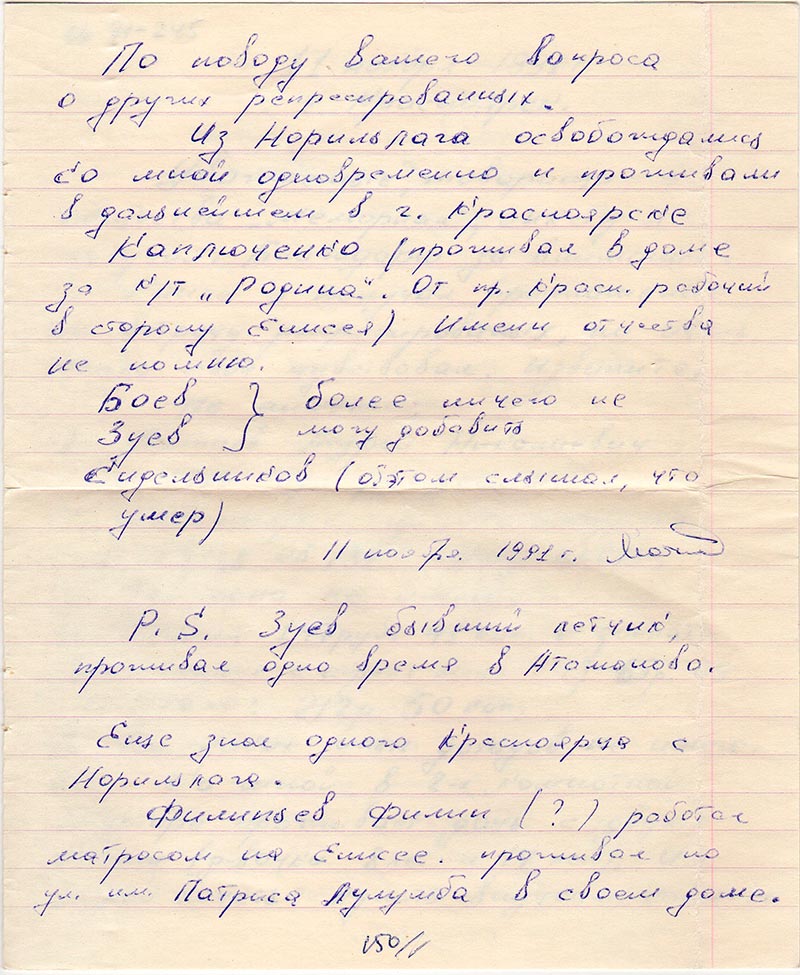 По поводу Вашего вопроса
о других репресированных.
Из Норильлага освобождались
со мной одновременно и проживали
в дальнейшем в г. Красноярске
Каплюченко (проживал в доме
за к/т „Родина". От пр. Красн. рабочий
в сторону Енисея) Имени, отчества
не помню.
Боев } более ничего не
Зуев } могу добавить
Ейдельников (об этом слышал, что
умер)
11 ноября. 1991 г.
P. S. Зуев бывший летчик,
проживал одно время в Атаманово.
Еще знал одного Красноярца с
Норильлага.
Филипцев Филип (?) работал
матросом на Енисее. проживал по
ул. им. Патриса Лулумба в своем доме.
150/1